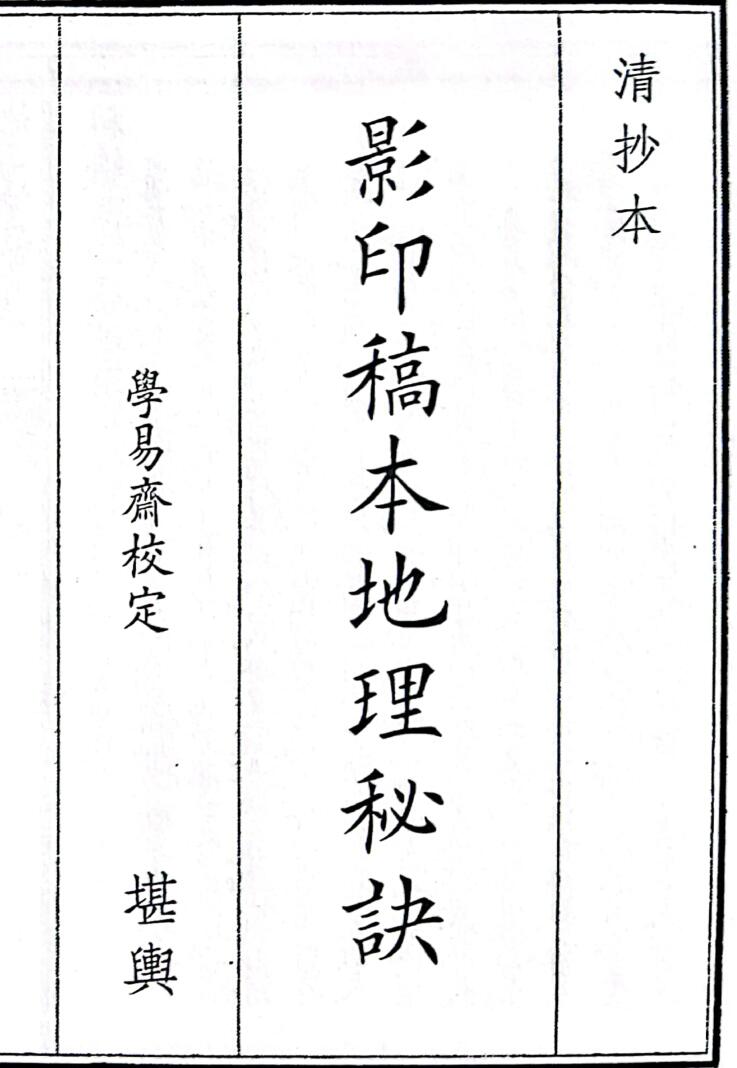 清抄本
影印稿本地理秘訣
學易齋校定 堪輿